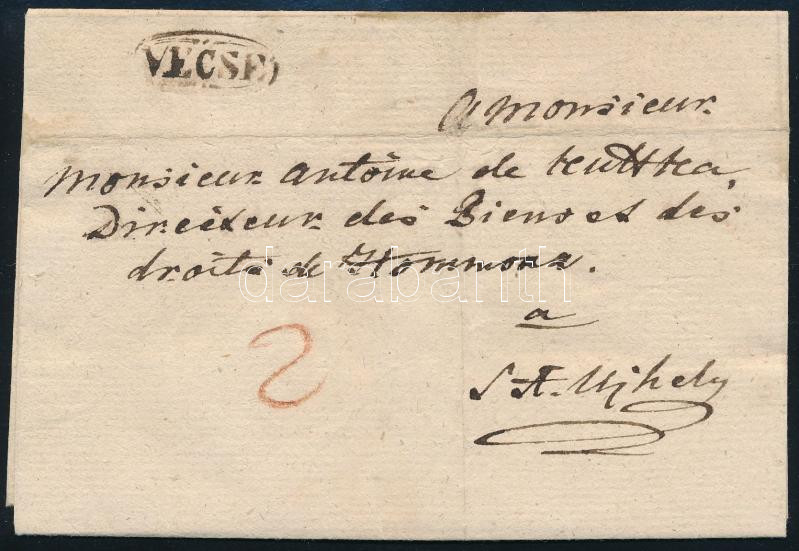 VÉCSE
A Monsieur
Monsieur Antoine de Kuttka,
Directeur des Biens et des
droits de Hommona.
darabanth
a
S. A. Ujhely
2